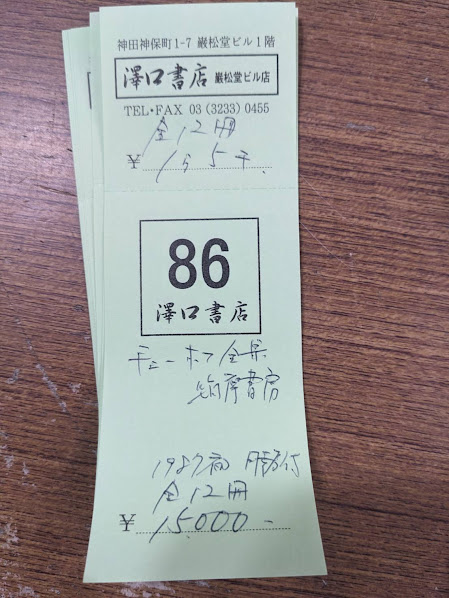 神田神保町1-7 巌松堂ビル1階
澤口書店 巌松堂ビル店
TEL・FAX 03 (3233) 0455
全12冊
¥ 1万5千.
86
澤口書店
チェーホフ全集
筑摩書房
1987 月報付
全12冊
¥ 15,000-